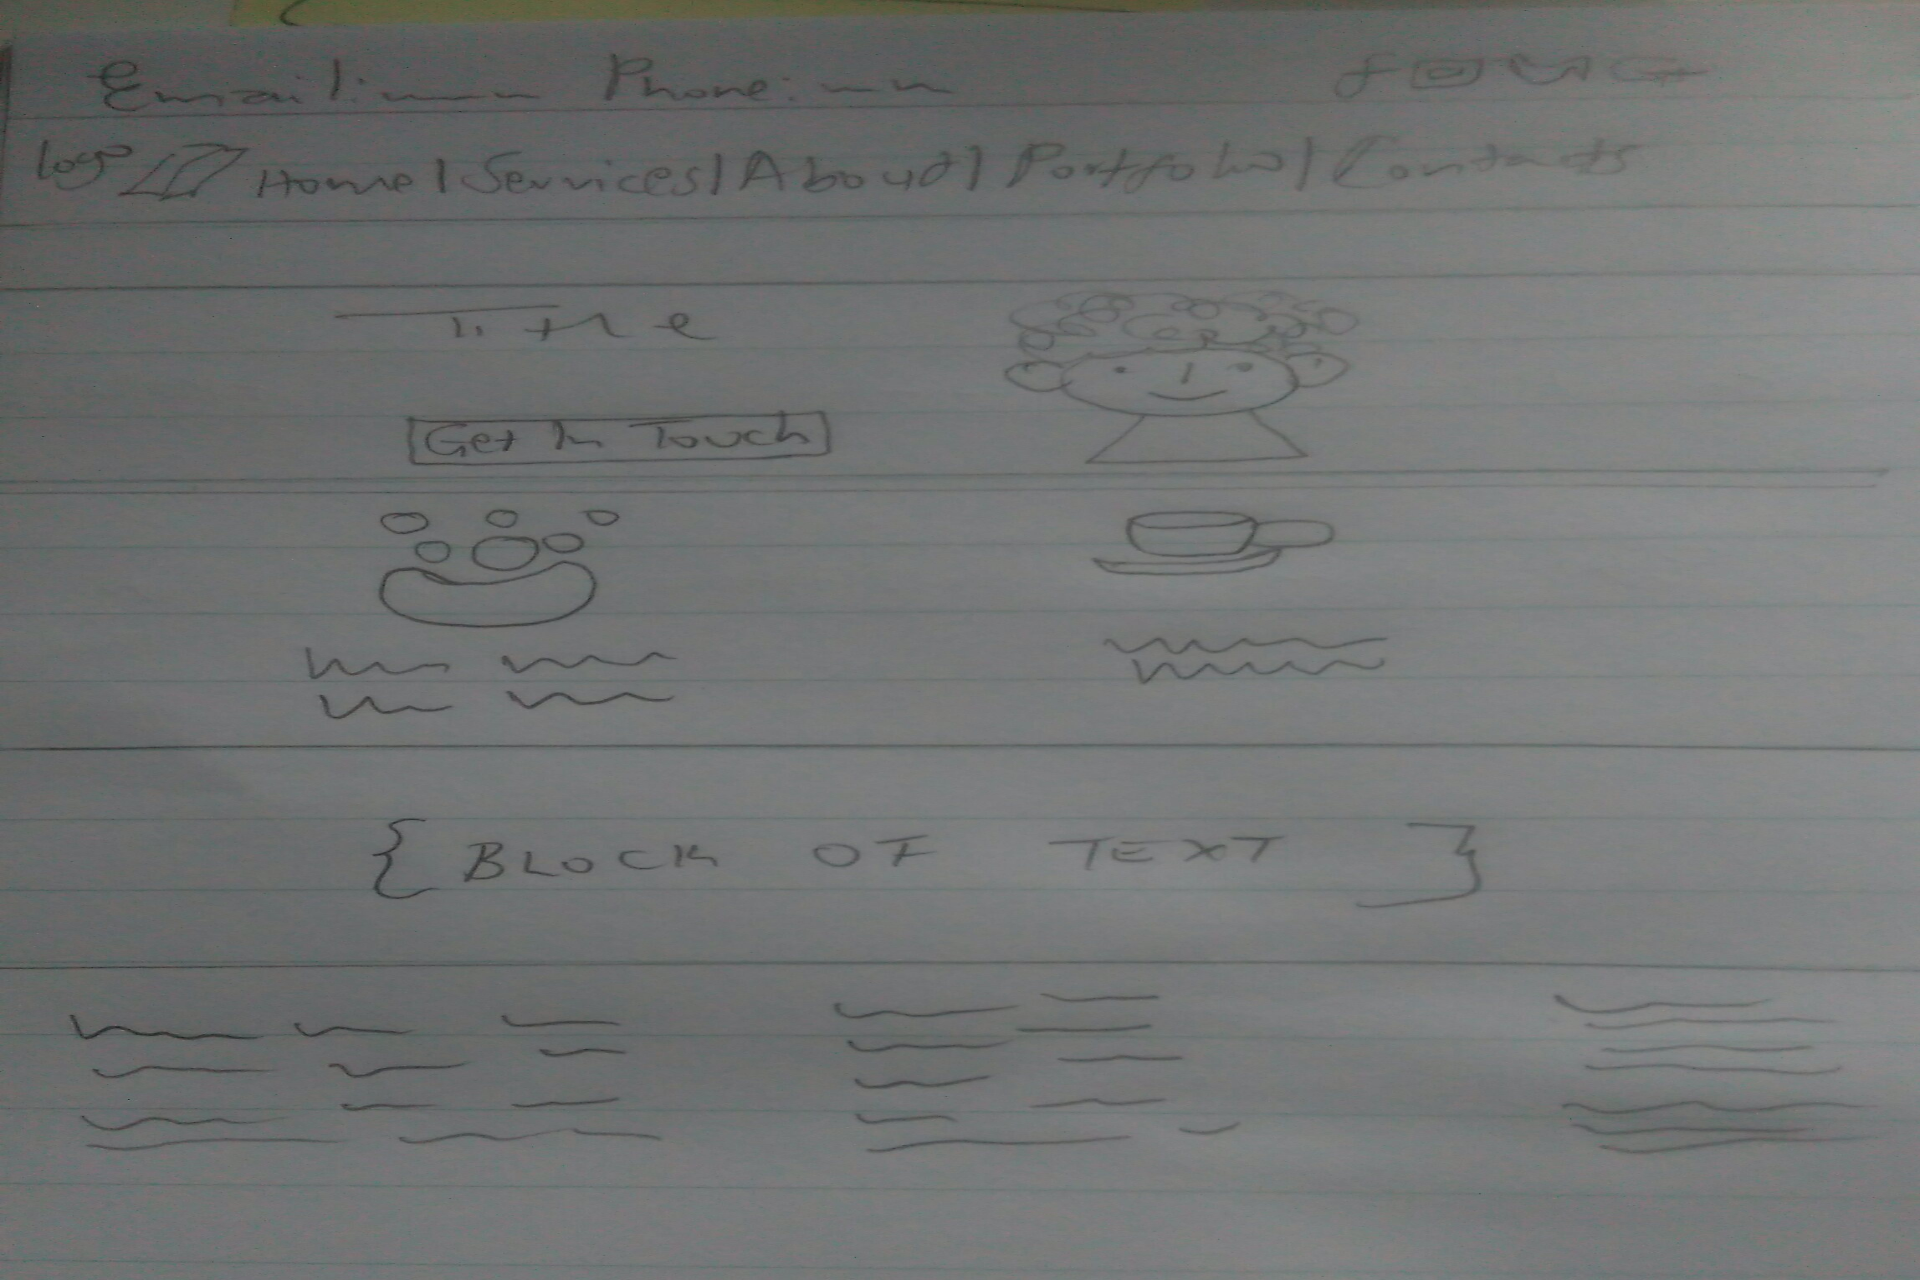 Email: Phone:
logo Home | Services | About | Portfolio | Contacts
Title
Get In Touch
{ BLOCK OF TEXT }